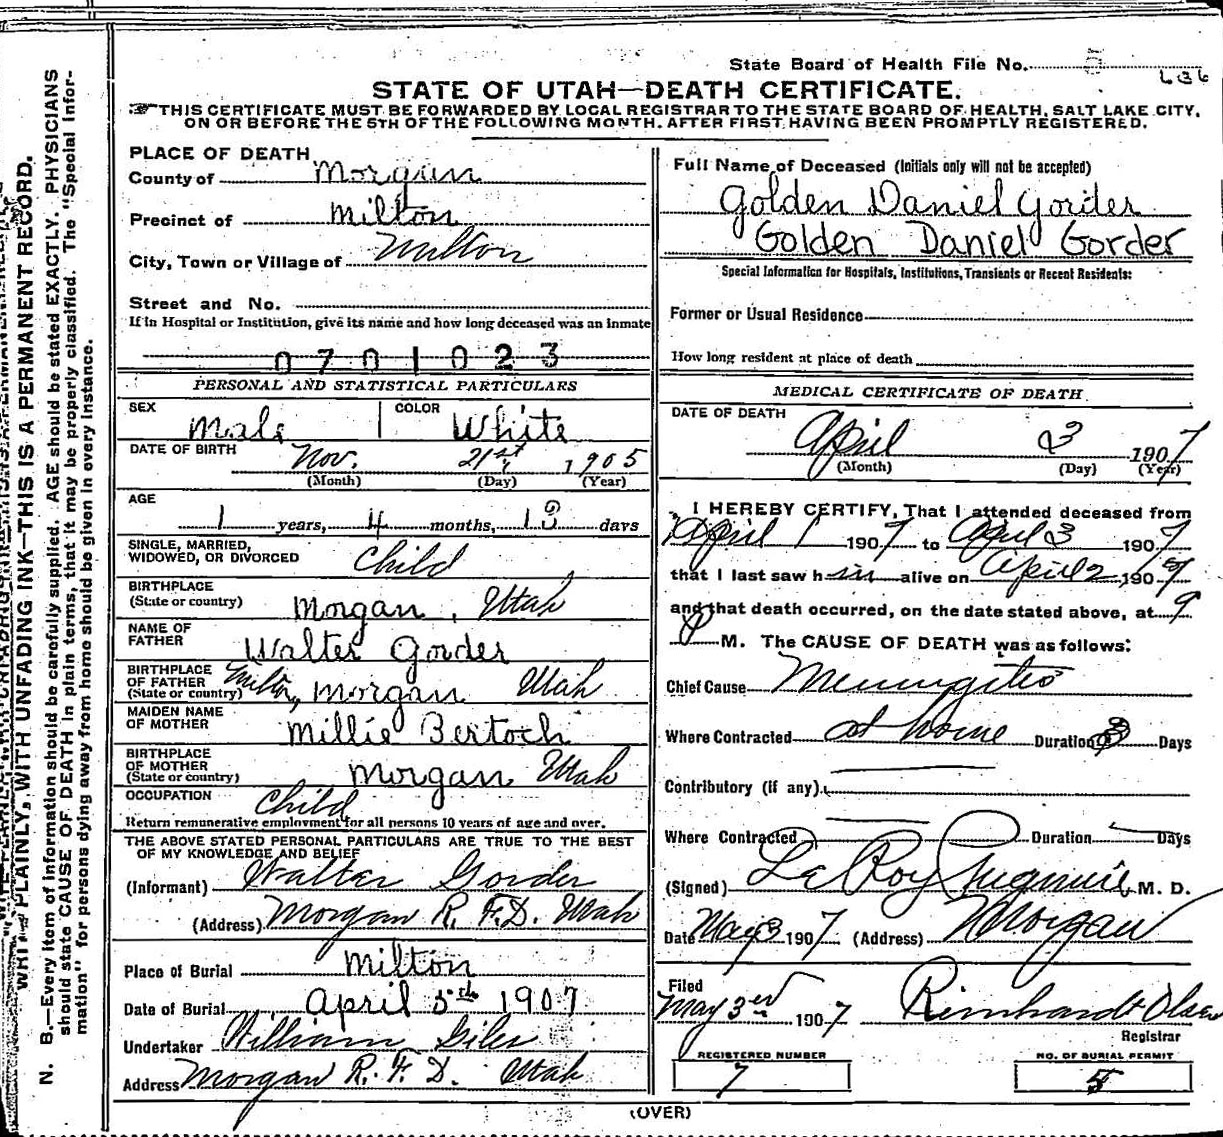 State Board of Health File No. 5
636
STATE OF UTAH—DEATH CERTIFICATE.
THIS CERTIFICATE MUST BE FORWARDED BY LOCAL REGISTRAR TO THE STATE BOARD OF HEALTH, SALT LAKE CITY,
ON OR BEFORE THE 5TH OF THE FOLLOWING MONTH. AFTER FIRST HAVING BEEN PROMPTLY REGISTERED.
WRITE PLAINLY, WITH UNFADING INK—THIS IS A PERMANENT RECORD.
N. B.—Every item of information should be carefully supplied. AGE should be stated EXACTLY. PHYSICIANS
should state CAUSE OF DEATH in plain terms, that it may be properly classified. The "Special Infor-
mation" for persons dying away from home should be given in every instance.
PLACE OF DEATH
County of Morgan
Precinct of Milton
City, Town or Village of Milton
Street and No.
If in Hospital or Institution, give its name and how long deceased was an inmate
0701023
PERSONAL AND STATISTICAL PARTICULARS
SEX Male COLOR White
DATE OF BIRTH Nov. 21st 1905
(Month) (Day) (Year)
AGE
1 years, 4 months, 13 days
SINGLE, MARRIED,
WIDOWED, OR DIVORCED Child
BIRTHPLACE
(State or country) Morgan, Utah
NAME OF
FATHER Walter Gorder
BIRTHPLACE
OF FATHER
(State or country) Milton, Morgan Utah
MAIDEN NAME
OF MOTHER Millie Bertoch
BIRTHPLACE
OF MOTHER
(State or country) Morgan Utah
OCCUPATION Child
Return remunerative employment for all persons 10 years of age and over.
THE ABOVE STATED PERSONAL PARTICULARS ARE TRUE TO THE BEST
OF MY KNOWLEDGE AND BELIEF
(Informant) Walter Gorder
(Address) Morgan R. F. D. Utah
Place of Burial Milton
Date of Burial April 5th 1907
Undertaker William Giles
Address Morgan R. F. D. Utah
Full Name of Deceased (Initials only will not be accepted)
Golden Daniel Gorder
Golden Daniel Gorder
Special Information for Hospitals, Institutions, Transients or Recent Residents:
Former or Usual Residence
How long resident at place of death
MEDICAL CERTIFICATE OF DEATH
DATE OF DEATH
April 3 1907
(Month) (Day) (Year)
I HEREBY CERTIFY, That I attended deceased from
April 1 1907 to April 3 1907
that I last saw him alive on April 2, 1907
and that death occurred, on the date stated above, at 9
P M. The CAUSE OF DEATH was as follows:
Chief Cause Meningitis
Where Contracted at home Duration 3 Days
Contributory (if any)
Where Contracted Duration Days
(Signed) La Roy Pugmire M. D.
Date May 3 1907 (Address) Morgan
Filed
May 3rd 1907 Reinhardt Olsen
Registrar
REGISTERED NUMBER
7
NO. OF BURIAL PERMIT
5
(OVER)